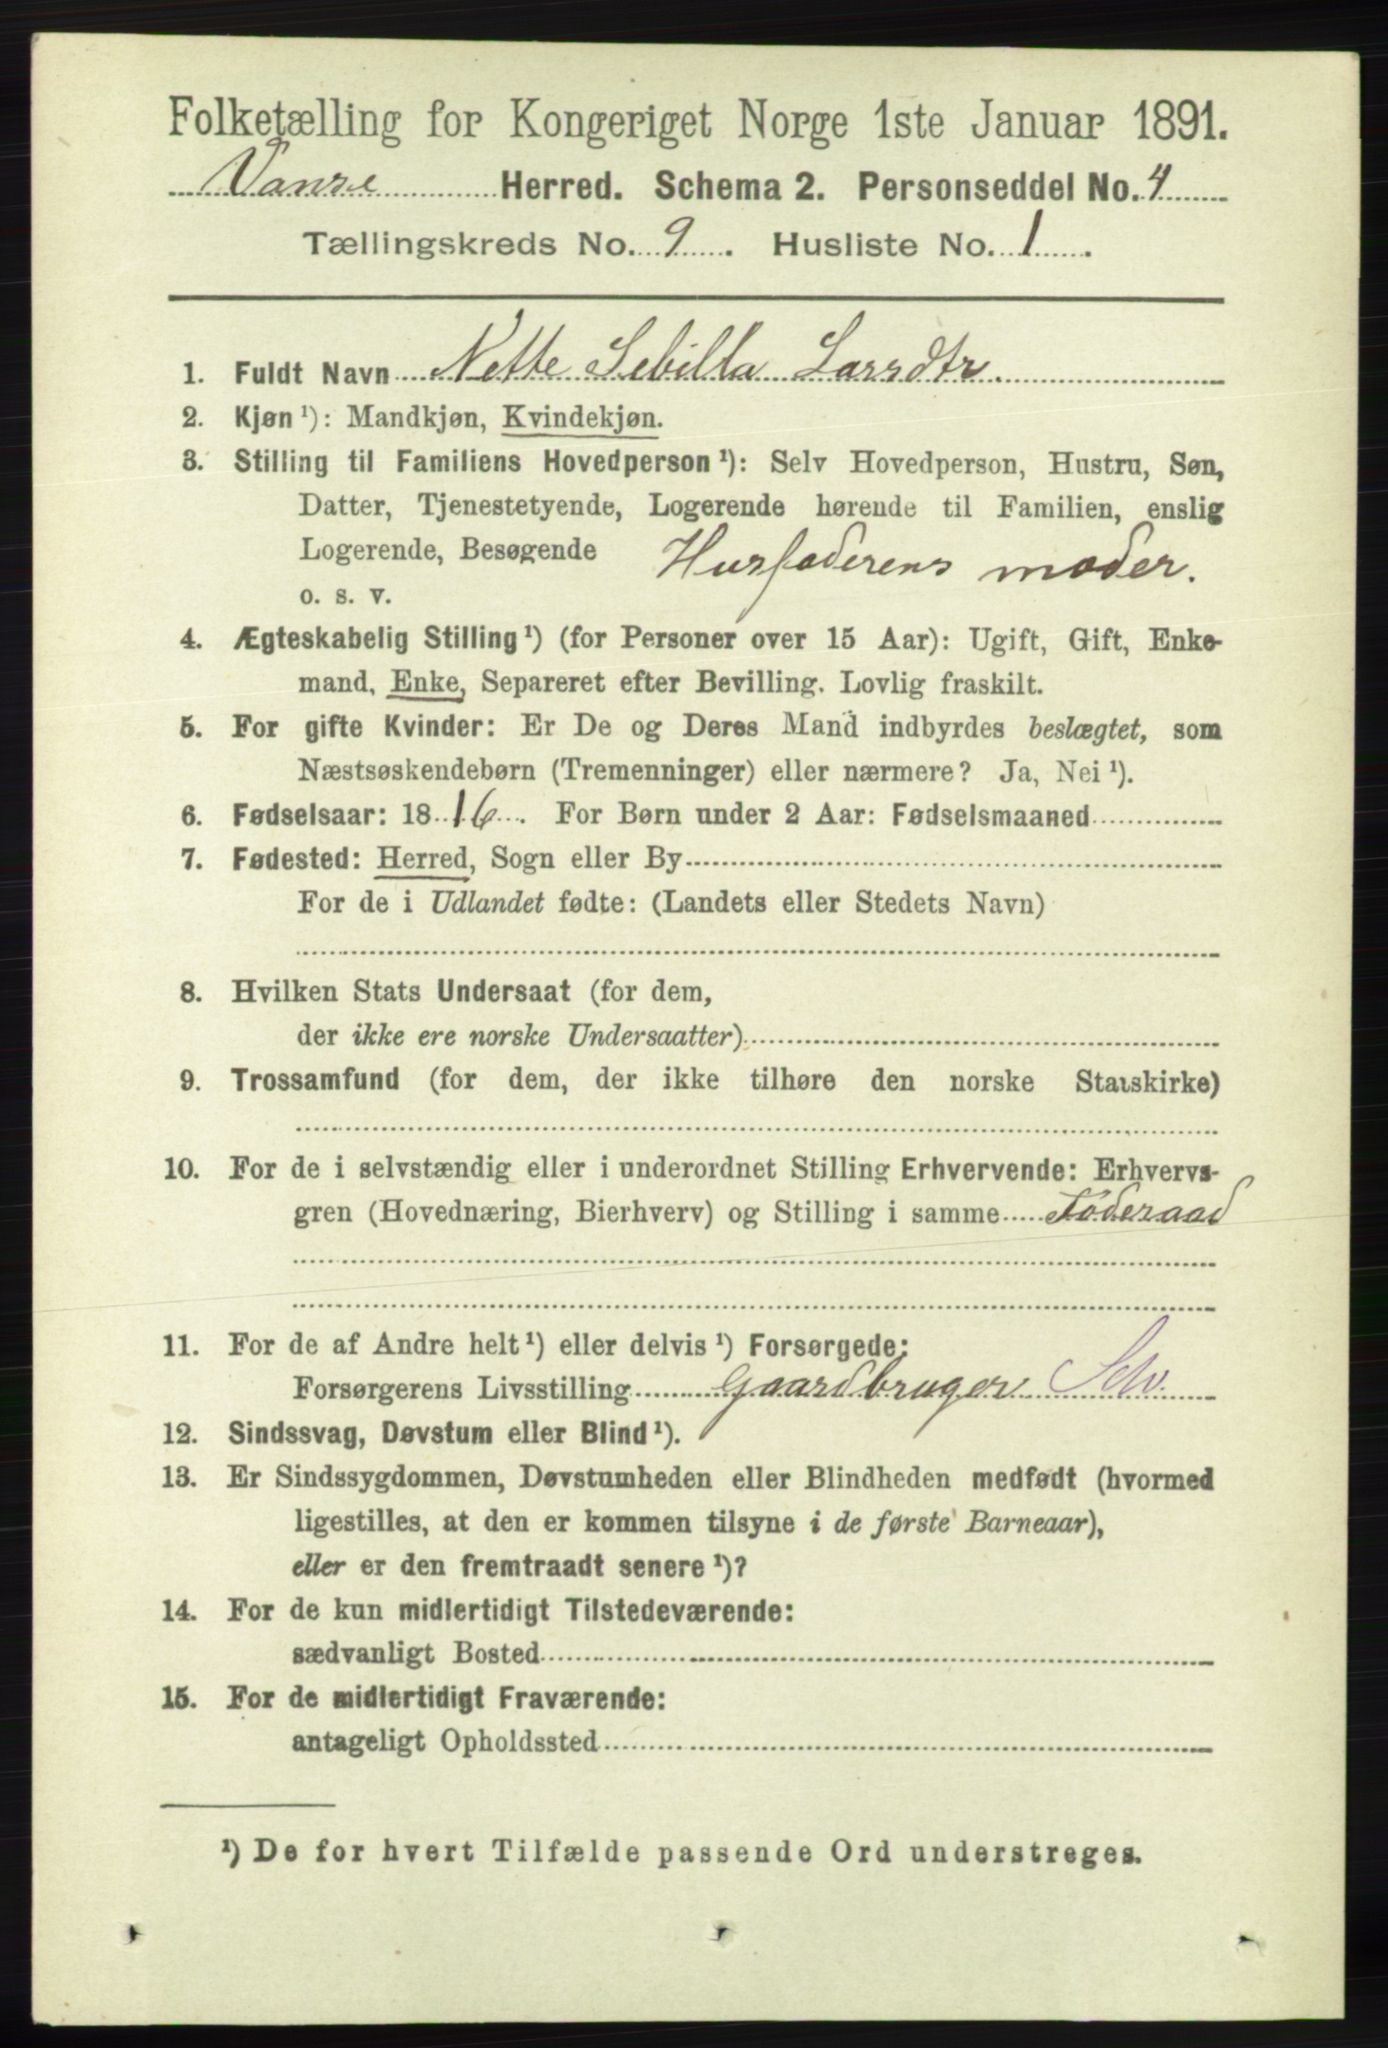 Folketælling for Kongeriget Norge 1ste Januar 1891.
Vanse Herred. Schema 2. Personseddel No. 4
Tællingskreds No. 9. Husliste No. 1.
1. Fuldt Navn Nette Sebilla Larsdtr.
2. Kjøn¹): Mandkjøn, Kvindekjøn.
3. Stilling til Familiens Hovedperson¹): Selv Hovedperson, Hustru, Søn,
Datter, Tjenestetyende, Logerende hørende til Familien, enslig
Logerende, Besøgende Husfaderens moder.
o. s. v.
4. Ægteskabelig Stilling¹) (for Personer over 15 Aar): Ugift, Gift, Enke-
mand, Enke, Separeret efter Bevilling. Lovlig fraskilt.
5. For gifte Kvinder: Er De og Deres Mand indbyrdes beslægtet, som
Næstsøskendebørn (Tremenninger) eller nærmere? Ja, Nei¹).
6. Fødselsaar: 1816. For Børn under 2 Aar: Fødselsmaaned
7. Fødested: Herred, Sogn eller By
For de i Udlandet fødte: (Landets eller Stedets Navn)
8. Hvilken Stats Undersaat (for dem,
der ikke ere norske Undersaatter)
9. Trossamfund (for dem, der ikke tilhøre den norske Statskirke)
10. For de i selvstændig eller i underordnet Stilling Erhvervende: Erhvervs-
gren (Hovednæring, Bierhverv) og Stilling i samme Föderaad
11. For de af Andre helt¹) eller delvis¹) Forsørgede:
Forsørgerens Livsstilling Gaardbruger Selv
12. Sindssvag, Døvstum eller Blind¹).
13. Er Sindssygdommen, Døvstumheden eller Blindheden medfødt (hvormed
ligestilles, at den er kommen tilsyne i de første Barneaar),
eller er den fremtraadt senere¹)?
14. For de kun midlertidigt Tilstedeværende:
sædvanligt Bosted
15. For de midlertidigt Fraværende:
antageligt Opholdssted
¹) De for hvert Tilfælde passende Ord understreges.